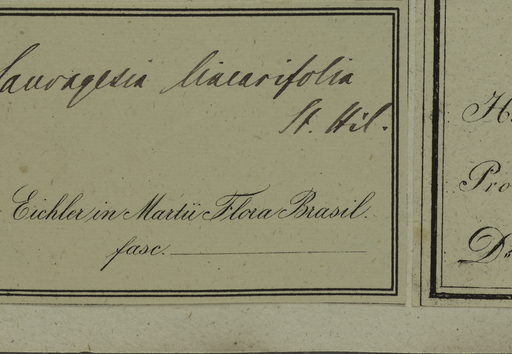 Sauvagesia linearifolia
St. Hil.
Eichler in Martii Flora Brasil.
fasc.
H
Pro
D